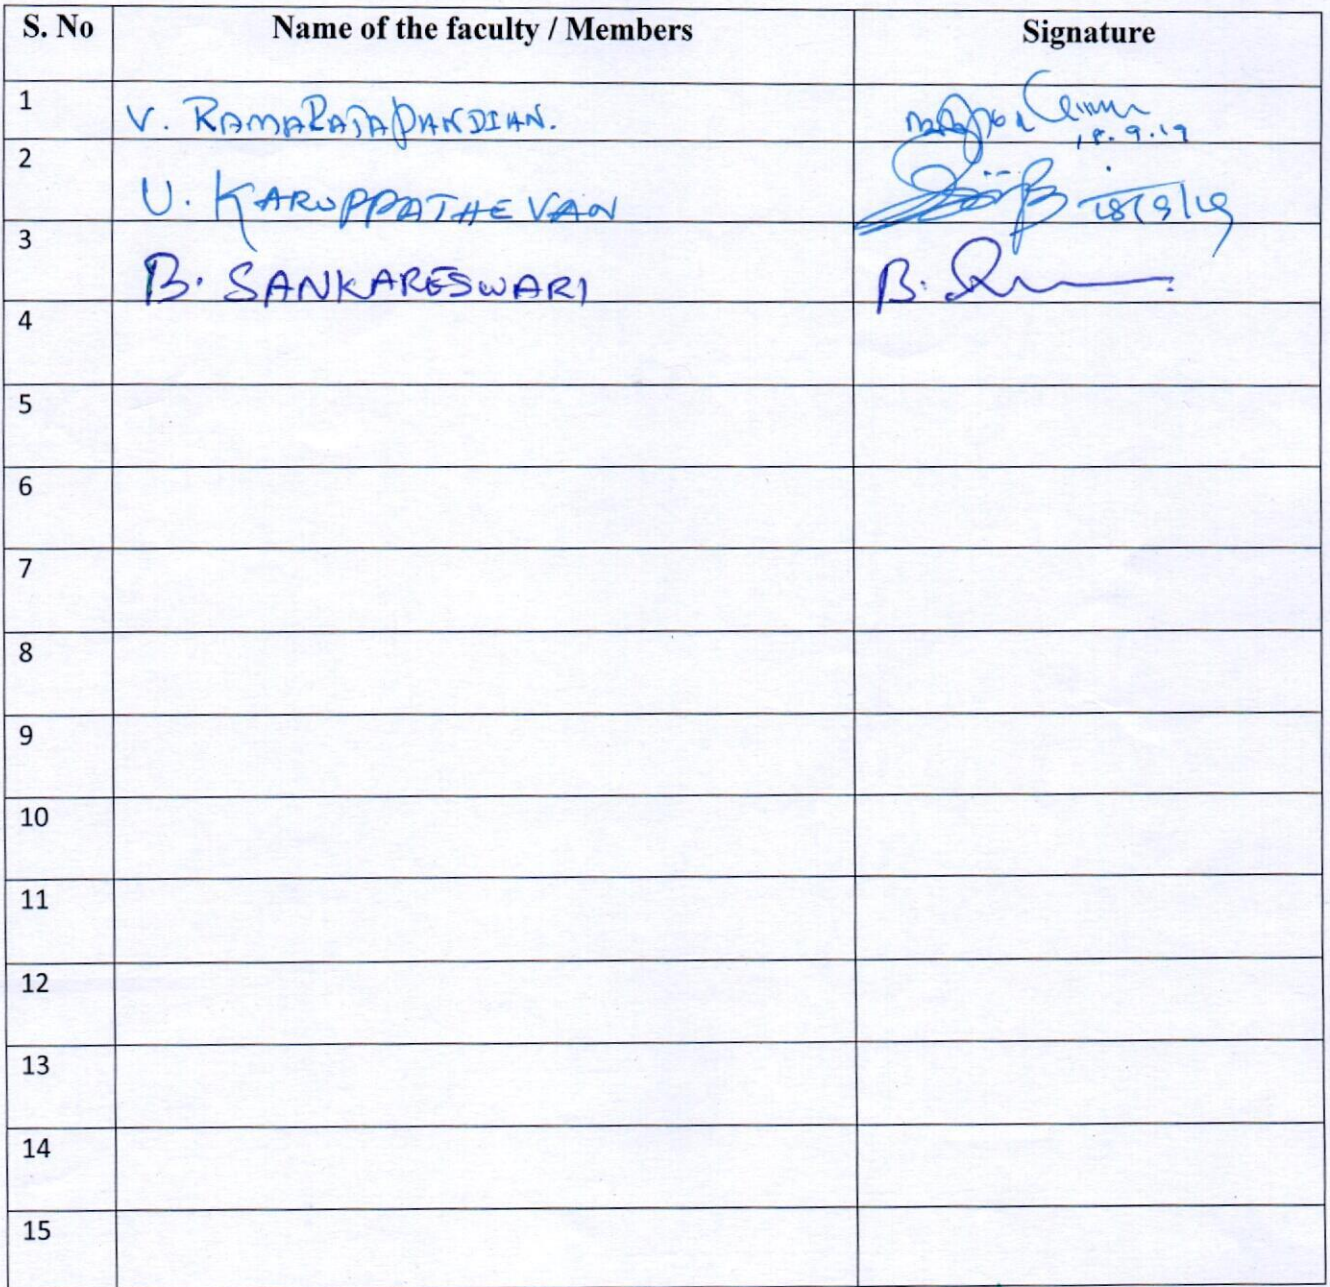 S. No Name of the faculty / Members Signature
1 V. RAMARAJAPANDIAN. 18.9.19
2 U. KARUPPATHEVAN 18/9/19
3 B. SANKARESWARI B.
4
5
6
7
8
9
10
11
12
13
14
15